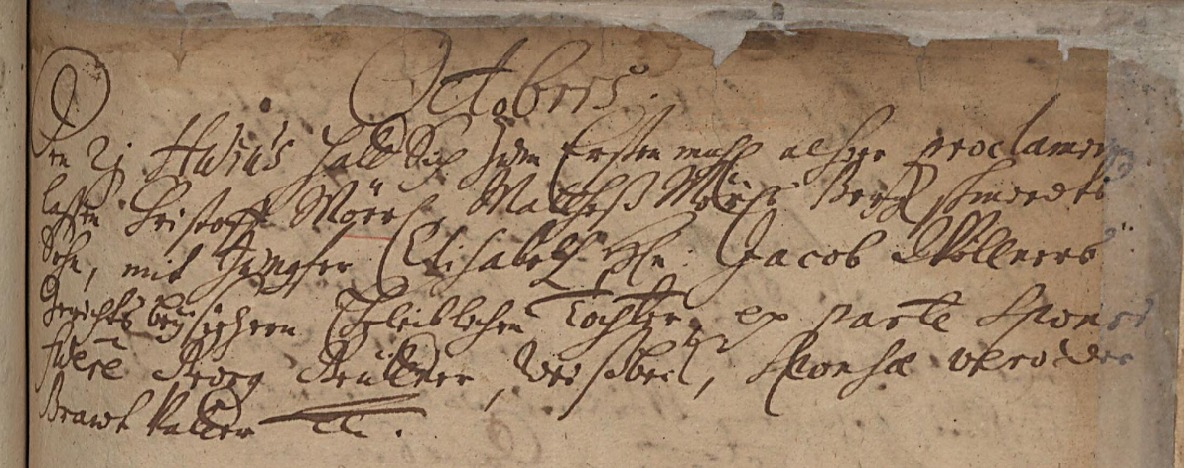 Octobris.
Den 2j Huius hatt Sich Zum Ersten mahl alhier proclamiren
lassen Christoff Mörl, Matheß Mörls Berg
Sohn, mit Jungfer Elisabeth Hn: Jacob Wöllners
Gerichts beysizern Eheleiblichen Tochter, ex parte Sponsi
fuere Georg, Sponsæ vero der
Brawt Vatter